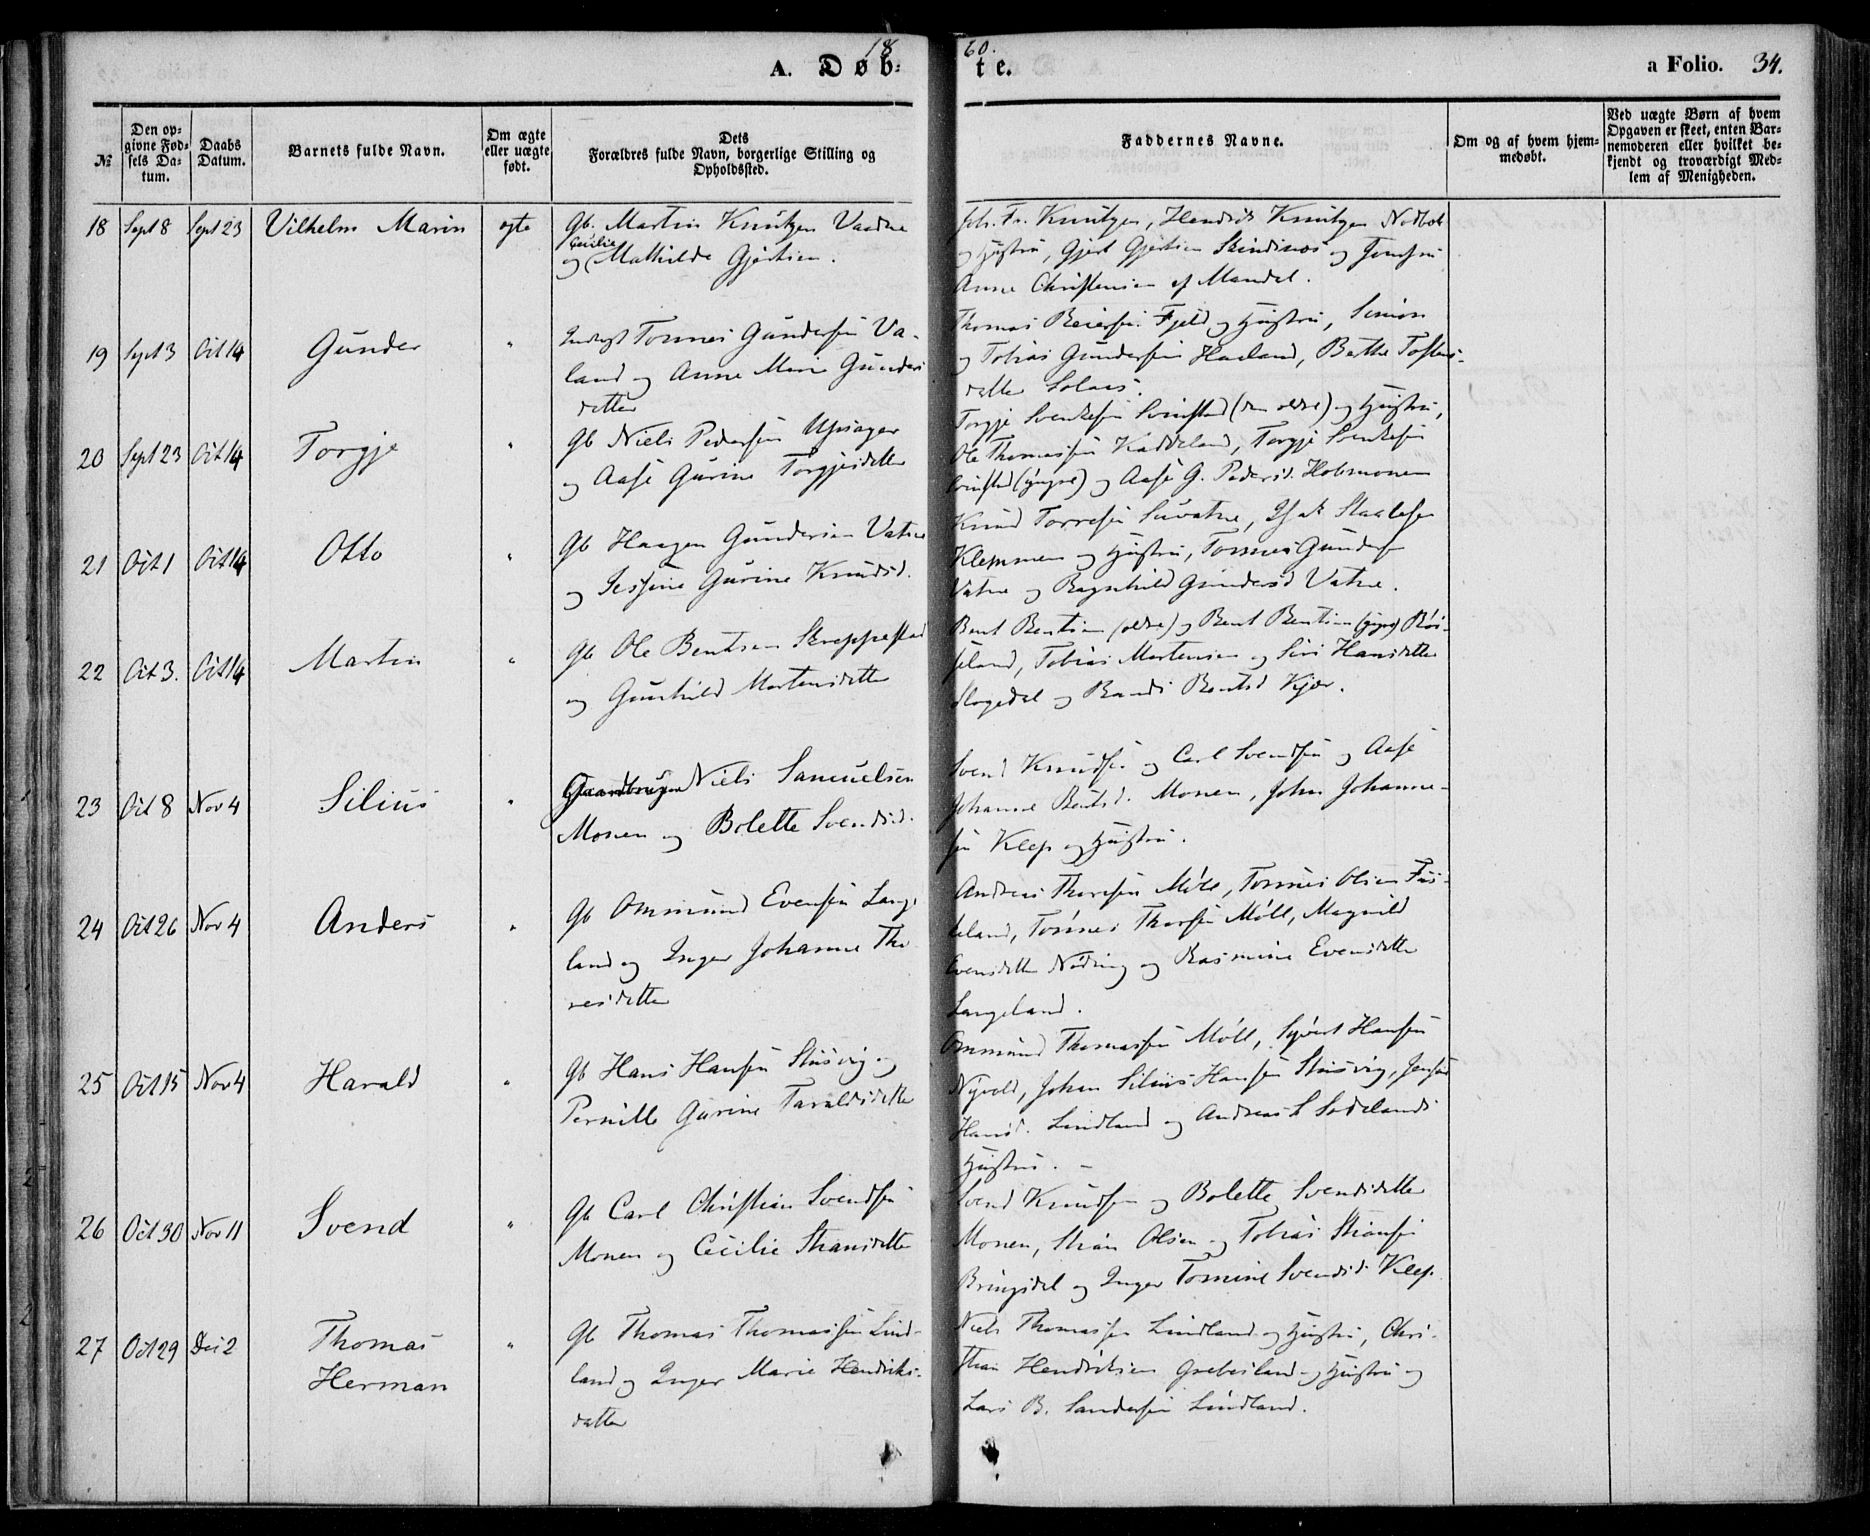 1860.
A. Døbte.
a Folio. 34.
№
Den opgivne Fødsels Datum.
Daabs Datum.
Barnets fulde Navn.
Om ægte eller uægte født.
Dets Forældres fulde Navn, borgerlige Stilling og Opholdssted.
Faddernes Navne.
Om og af hvem hjemmedøbt.
Ved uægte Børn af hvem Opgaven er skeet, enten Barnemoderen eller hvilket bekjendt og troværdigt Medlem af Menigheden.
18 Sept 8 Sept 23 Vilhelm Marin egte
Gb. Martin Knutzen
Cecilie
og Mathilde Gjertsen.
Fr. Knutzen, Hendrik Knutzen
og Hustru, Gjert Gjertsen Skindsnes og
Anne Christensen af Mandal.
19 Sept 3 Oct 14 Gunder "
Tønnes Gundersen Va-
land og Anne Marie Gunders
datter
Thomas Reiersen Fjeld og Hustru, Simon
og Tobias Gundersen Haaland, Berthe
datter Solaas.
20 Sept 23 Oct 14 Torgje "
Gb Niels Pedersen
og Aase Gurine Torgjesdatter
Torgje Svendsen (den eldre) og Hustru,
Ole Thomassen Kaddeland, Torgje
(yngre) og Aase G. Pedersd. Holmen
21 Oct 1 Oct 14 Otto "
Gb Haagen Gundersen Vatne
og Gurine Knudsd.
Knud, Isak Staalesen
Klemmen og Hustru, Tønnes Gunders
Vatne og Ragnhild Gundersd Vatne.
22 Oct 3. Oct 14 Martin "
Gb Ole Bentsen Skreppestad
og Gunhild Mortensdatter
Bent Bentsen (eldre) og Bent Bentsen (yngre) Røi-
seland, Tobias Mortensen og Siri Hansdatter
og Randi Bentsd Kjær.
23 Oct 8 Nov 4 Silius "
Gaardbruger Niels Samuelsen
Monen og Bolette Svendsd.
Svend Knudsen og Carl Svendsen og Aase
Johanne Bentsd. Monen, John Johanne-
sen Kleep og Hustru.
24 Oct 26 Nov 4 Anders "
Gb Ommund Evensen Lange-
land og Inger Johanne Tho
resdatter
Andreas Thoresen Møll, Tønnes Olsen Fus-
keland, Tønnes Thoresen Møll, Magnild
Evensdatter Nøding og Rasmine Evensdatter
Langeland.
25 Oct 15 Nov 4 Harald "
Gb Hans Hansen Stusvig og
Pernille Gurine Taraldsdatter
Ommund Thomassen Møll, Syvert Hansen
Nyvold, Johan Silius Hansen Stusvig,
Hansd. Lindland og Andreas S Sodelands
Hustru. –
26 Oct 30 Nov 11 Svend "
Gb Carl Christian Svendsen
Monen og Cecilie Stiansdatter
Svend Knudsen og Bolette Svendsdatter
Monen, Stian Olsen og Tobias Stiansen
Bringsdal og Inger Tomine Svendsd. Kleep.
27 Oct 29 Dec 2 Thomas "
Herman
Gb Thomas Thomassen Lind-
land og Inger Marie Hendriks-
datter
Niels Thomassen Lindland og Hustru, Chri-
stian Hendriksen Grebesland og Hustru og
Lars B. Sandersen Lindland.